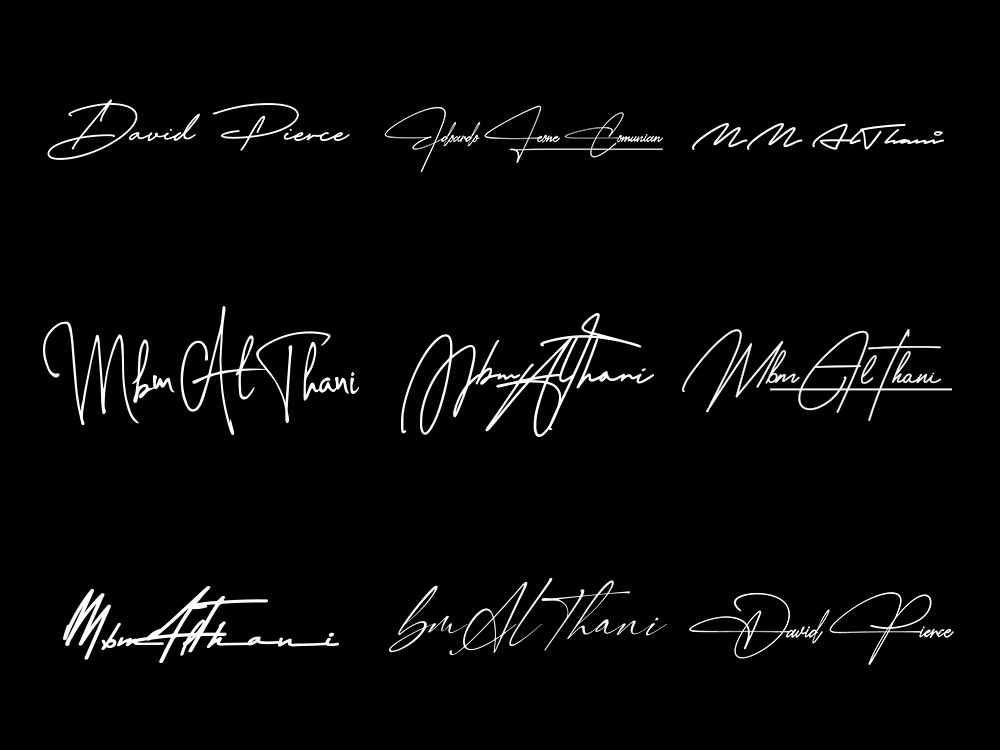 David Pierce
Edoardo Leone Comunian
M M Al Thani
Mbm Al Thani
Mbm Al Thani
Mbm Al Thani
Mbm Al Thani
bm Al Thani
David Pierce